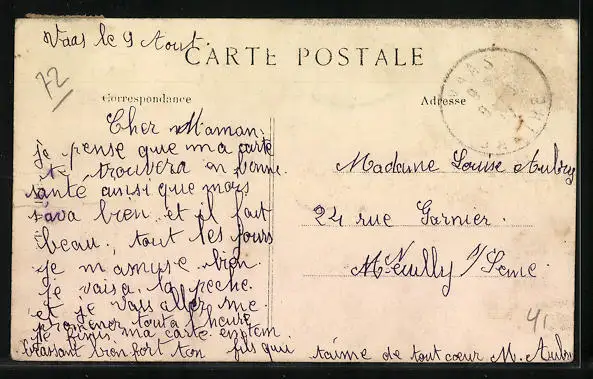 Vaas le 9 Aout.
CARTE POSTALE
72
Correspondance
Adresse
VAAS
Cher Maman.
je pense que ma carte
te trouvera en bonne
santé ainsi que mois
sava bien et il fait
beau. tout les jours
je m'amuse bien.
je vais a la peche.
et je vais aller me
promener tout a l'heure
je finis ma carte en tem
brassant bien fort ton fils qui t'aime de tout cœur M. Aubry
Madame Louise Aubry
24 rue Garnier.
Neuilly s/Seine.
41